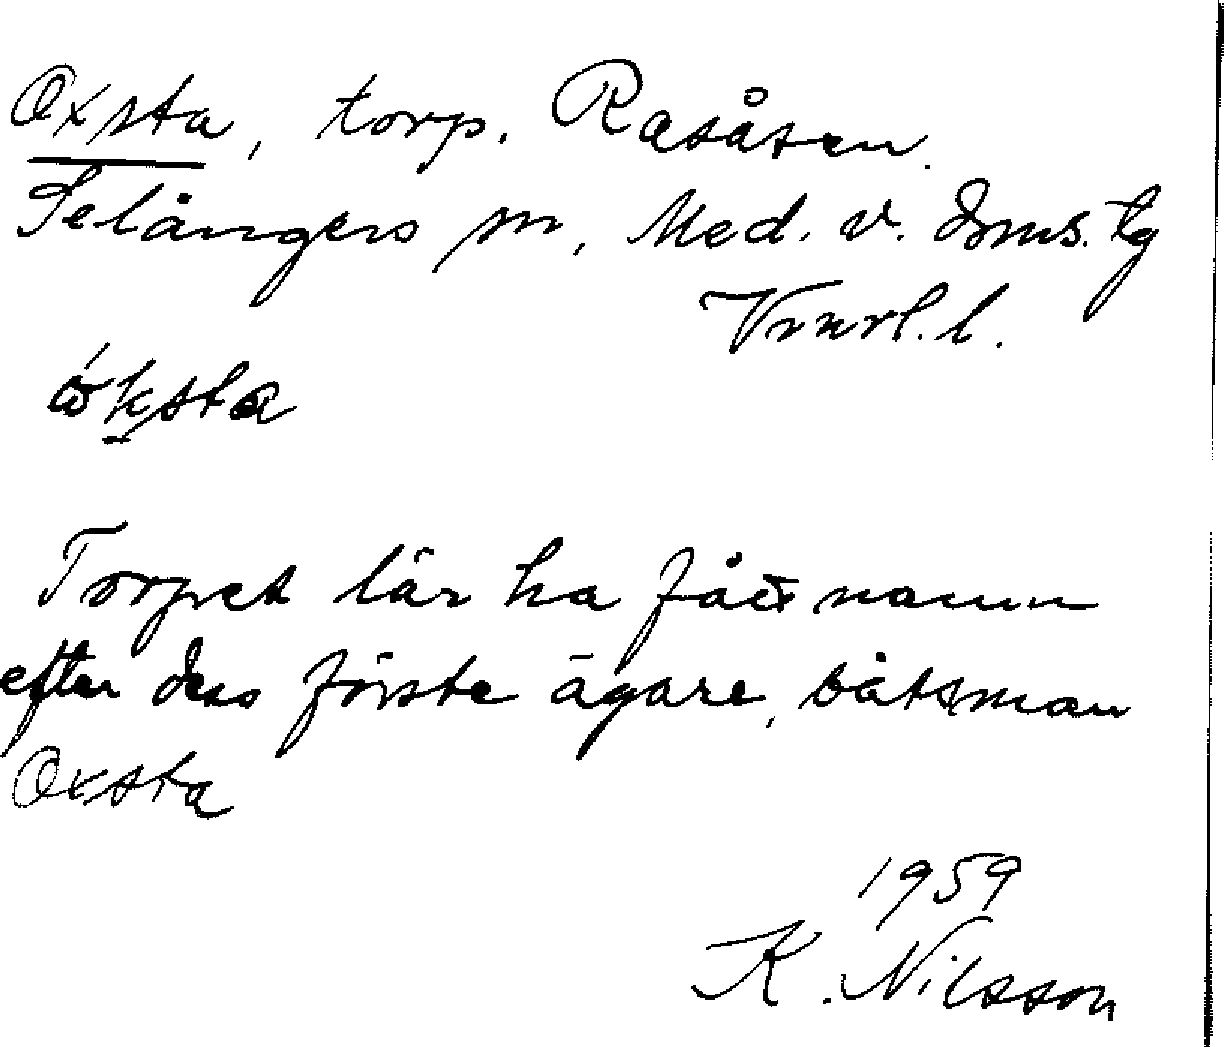 Oxsta, torp. Rasåsen.
Selångers sn, Med. v. Dms. tg
Vnrl. l.
Torpet lär ha fått namn
efter dess förste ägare, båtsman
Oxsta
1959
K. Nilsson